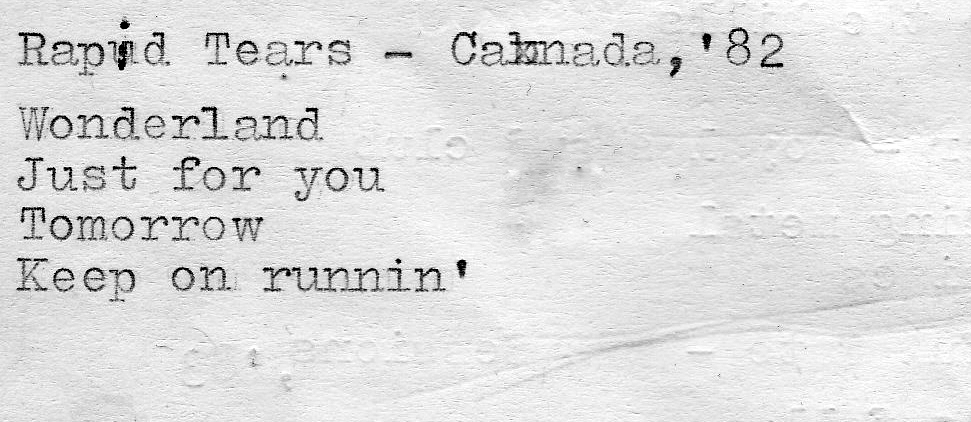 Rapid Tears - Canada,'82
Wonderland
Just for you
Tomorrow
Keep on runnin'